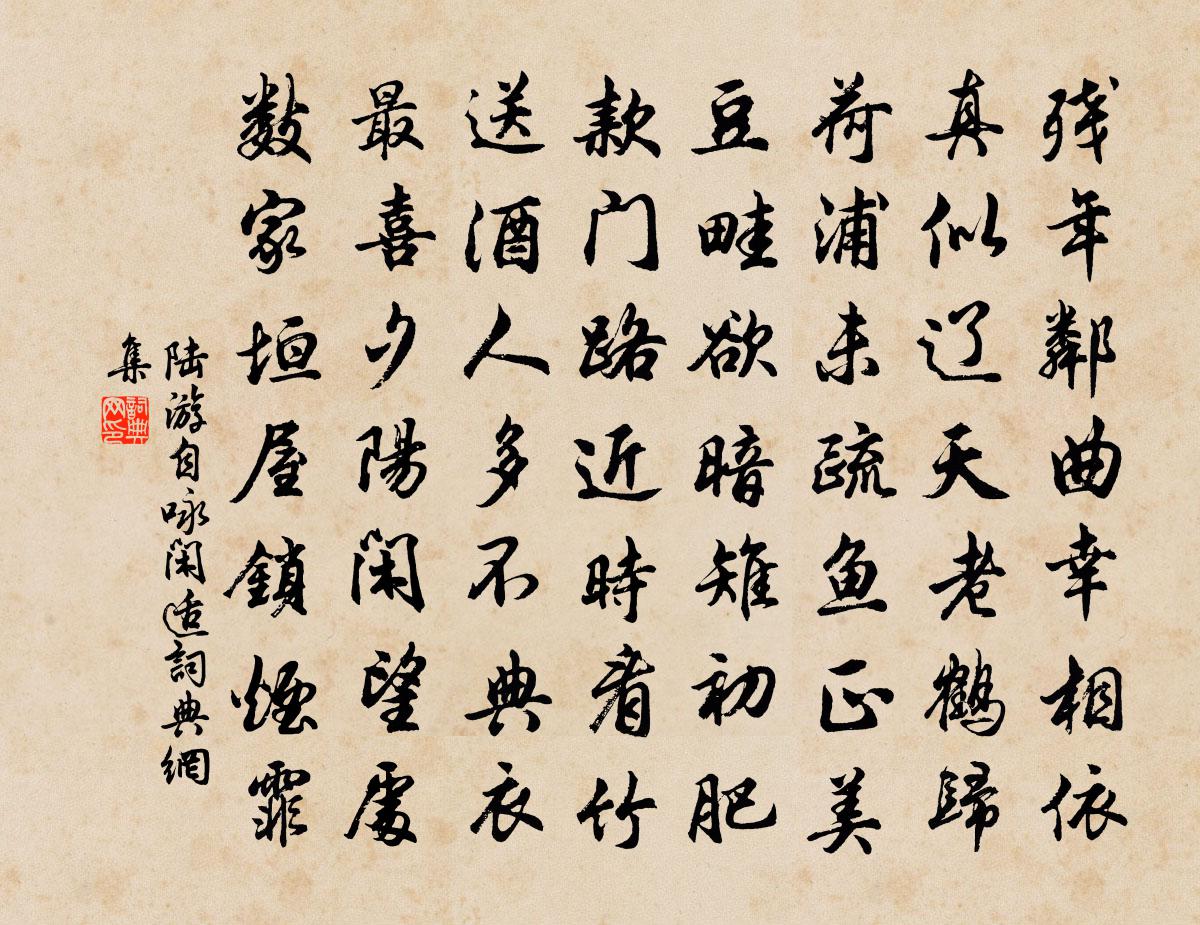 残年鄰曲幸相依
真似辽天老鶴歸
荷浦未疏鱼正美
豆畦欲暗雉初肥
款门路近時看竹
送酒人多不典衣
最喜夕陽閑望處
数家垣屋鎖煙霏
陆游自咏閑适詞典網
集
詞典
网印